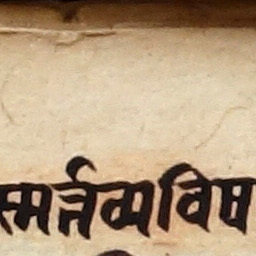 स्मर्त्तव्यविष